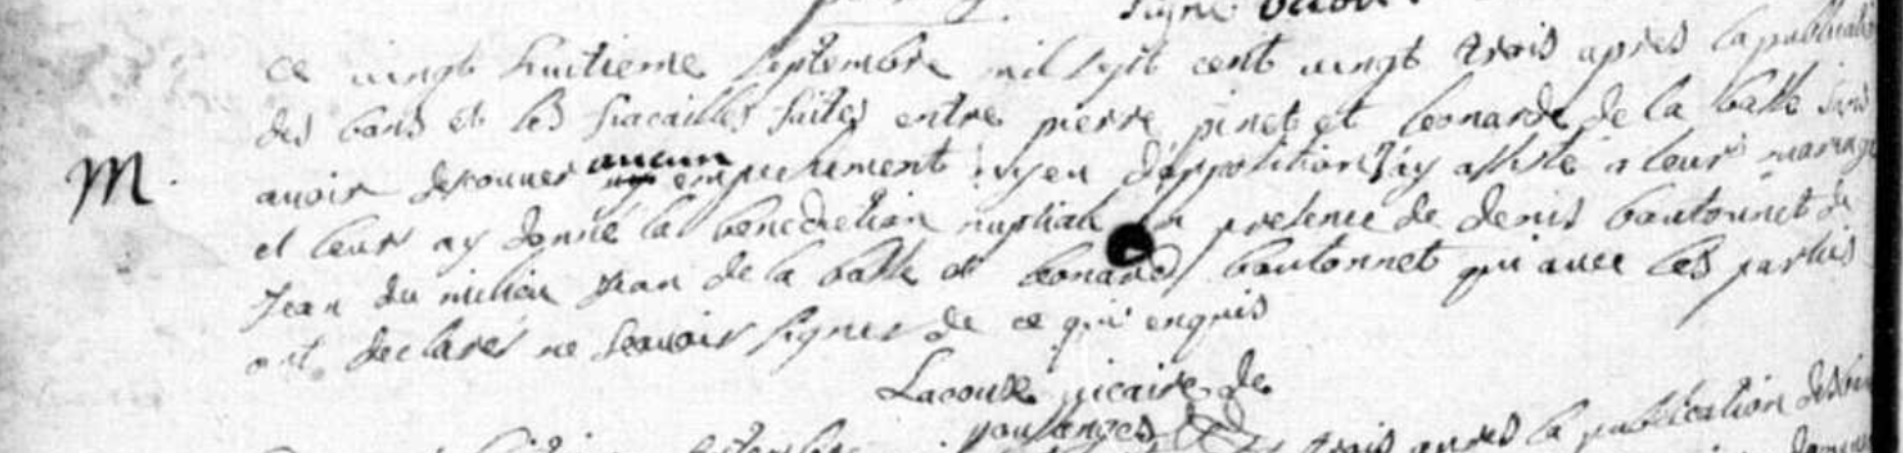 signé
ce vingt huitieme septembre mil sept cent vingt trois apres la publication
des bans et les fiacailles faites entre pierre pinet et leonarde de la batte sans
avoir descouver aucun empechement ny d'oppolition j'ay assisté a leur mariage
M.
et leur ay donné la benediction nuptiale en presence de denis boutonnet de
Jean du milieu Jean de la batte et leonard boutonnet qui avec les parties
ont declarer ne scavoir signer de ce qui enquis
Lacoux vicaire de
trois apres la publication des